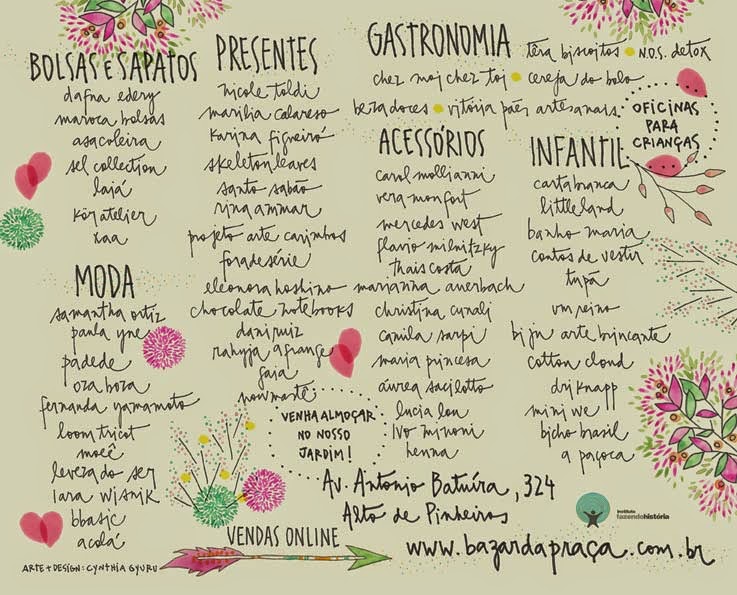 BOLSAS E SAPATOS
dafna edery
maroca bolsas
asacoleira
sel collection
laiá
kör atelier
xaa
MODA
samantha ortiz
paula yne
padede
oza boza
fernanda yamamoto
loom tricot
moeê
leveza do ser
lara wisnik
bbasic
acolá
PRESENTES
nicole toldi
marilia calareso
karina figueiró
skeleton leaves
santo sabão
rina ammar
projeto arte carinhos
foradesérie
eleonora hoshino
chocolate notebooks
dani ruiz
rahyja afrange
gaia
nowmastê
VENHA ALMOÇAR
NO NOSSO
JARDIM!
GASTRONOMIA têra biscoitos • N.O.S. detox
chez moi chez toi • cereja do bolo
beza doces • vitória pães artesanais
OFICINAS
PARA
CRIANÇAS
ACESSÓRIOS
carol mollianni
vera monfort
mercedes west
flavio milnitzky
thais costa
marianna auerbach
christina cunali
camila sarpi
maria princesa
áurea sacilotto
lucia lou
Ivo minoni
henna
INFANTIL
carta branca
little land
banho maria
contos de vestir
tupã
um reino
biju arte brincante
cotton cloud
dri knapp
mini we
bicho brasil
a paçoca
Av. Antonio Batuíra, 324
Alto de Pinheiros
instituto
fazendohistória
VENDAS ONLINE
www.bazardapraça.com.br
ARTE + DESIGN: CYNTHIA GYURU